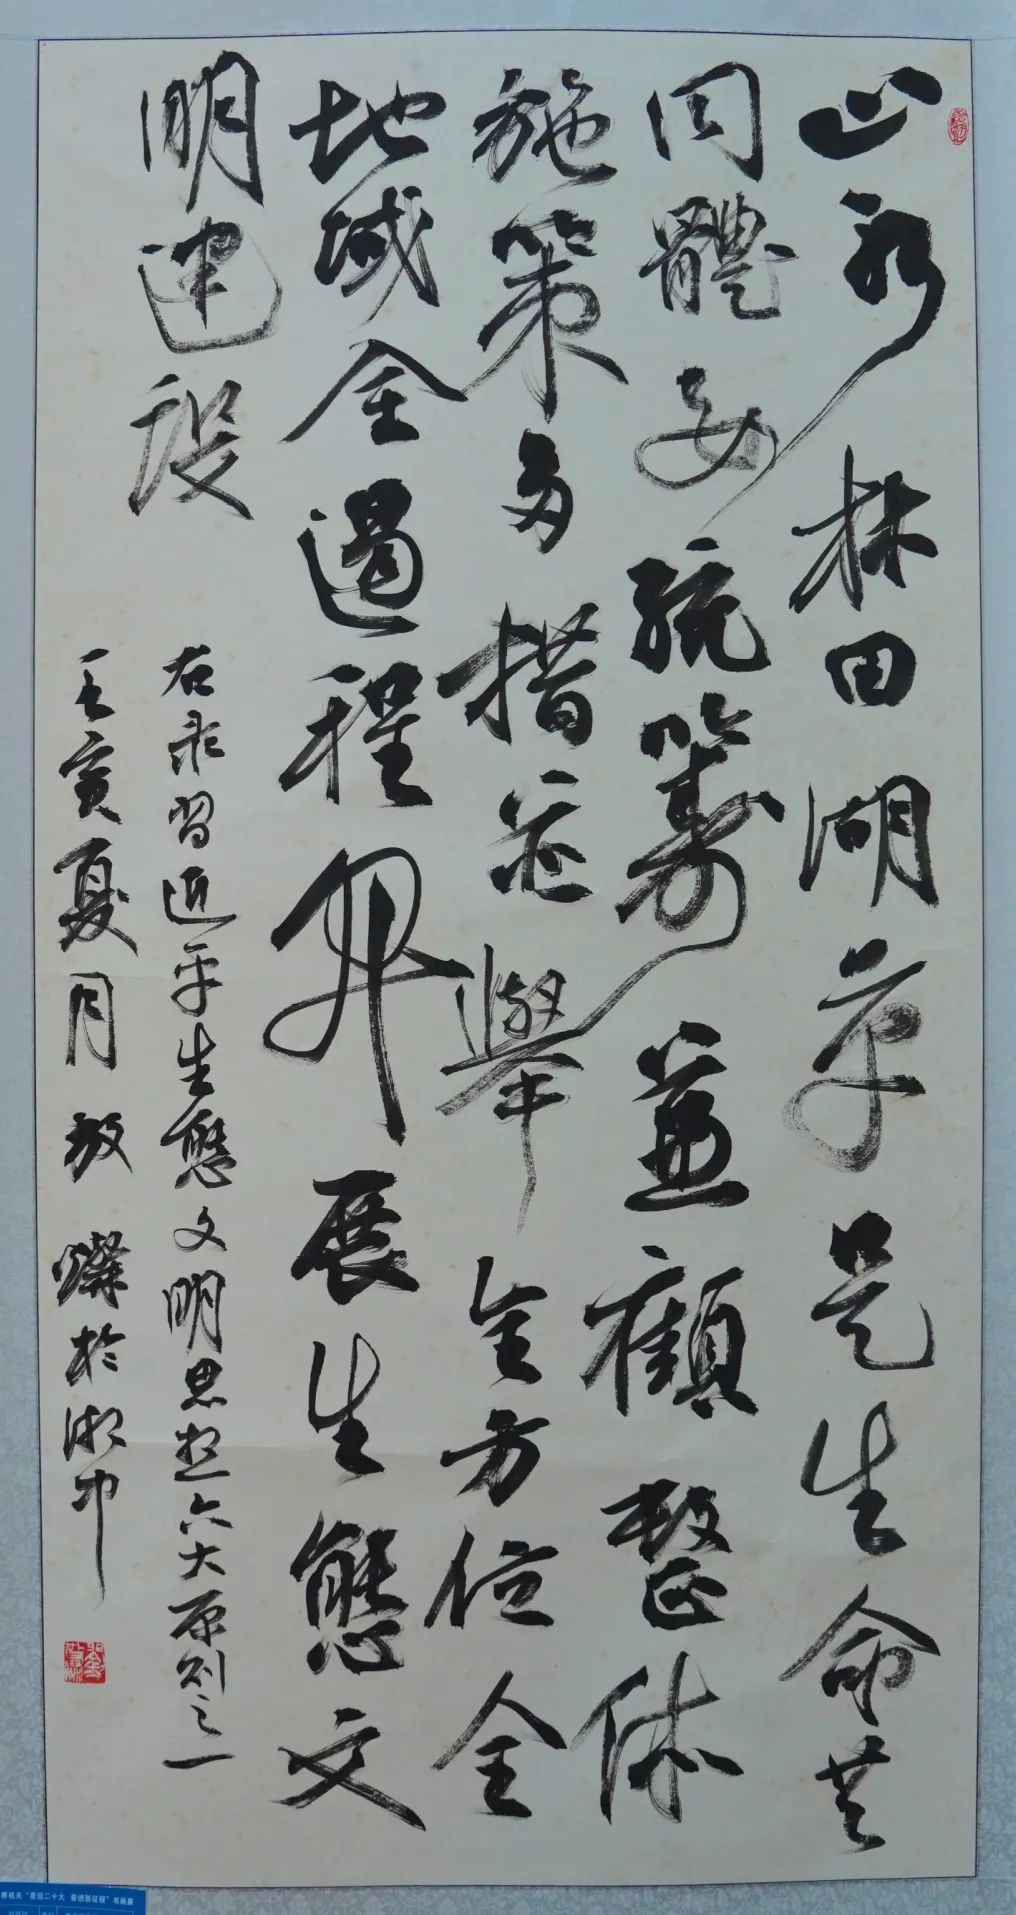 山水林田湖草是生命共
同體要統籌兼顧整体
施策多措並舉全方位全
地域全過程开展生態文
明建設
右录習近平生態文明思想六大原则之一
壬寅夏月 燦於湘中
机关“喜迎二十大 奋进新征程”书画展